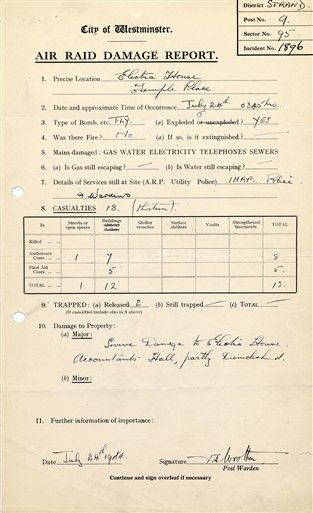 District STRAND.
Post No. 9.
Sector No. 95
Incident No. 1896
City of Westminster.
AIR RAID DAMAGE REPORT.
1. Precise Location Electra House
Temple Place.
2. Date and approximate Time of Occurrence July 24th 0345 hrs.
3. Type of Bomb, etc. FLY. (a) Exploded or unexploded? YES
4. Was there Fire? No (a) If so, is it extinguished?
5. Mains damaged: GAS WATER ELECTRICITY TELEPHONES SEWERS
6. (a) Is Gas still escaping? — (b) Is Water still escaping? —
7. Details of Services still at Site (A.R.P. Utility Police) Police
& Wardens
8. CASUALTIES 13. (thirteen)
In Streets or open spaces Buildings without shelters Shelter trenches Surface shelters Vaults Strengthened basements TOTAL
Killed
Ambulance Cases 1 7 8
First Aid Cases 5 5.
TOTAL 1 12 13.
9. TRAPPED: (a) Released 2 (b) Still trapped — (c) TOTAL —
(If casualties include also in 8 above)
10. Damage to Property:
(a) Major:
Severe Damage to Electra House.
Accountants Hall, partly Demolished.
(b) Minor:
11. Further information of importance:
Date July 24th 1944. Signature
Post Warden
Continue and sign overleaf if necessary